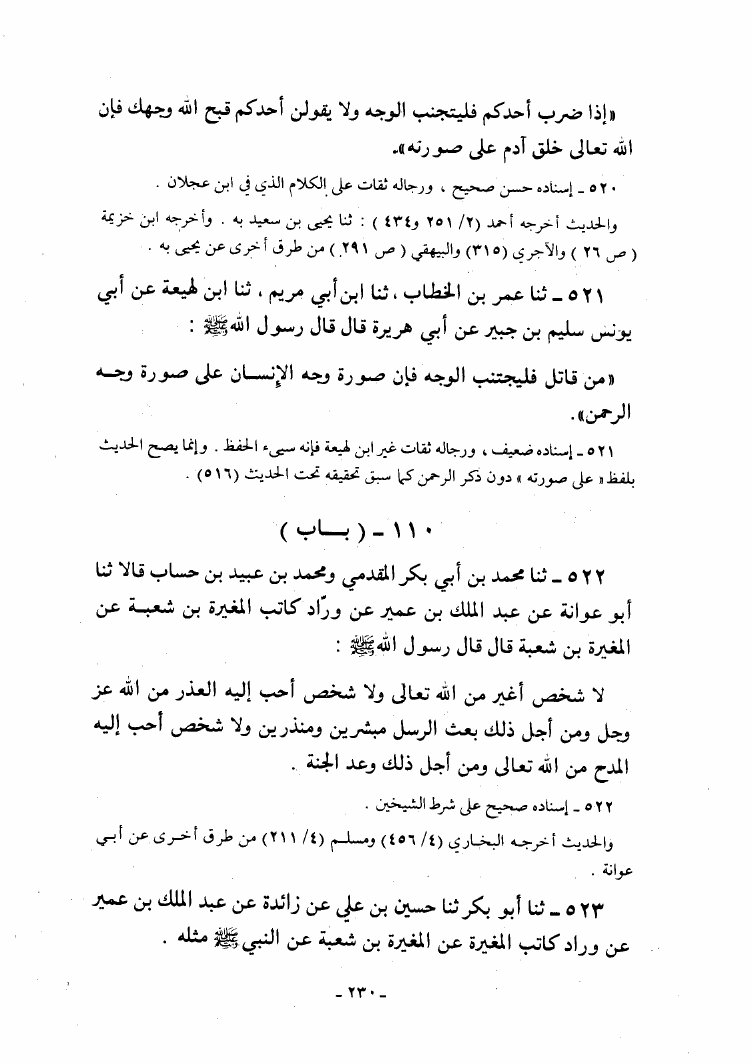 «إذا ضرب أحدكم فليتجنب الوجه ولا يقولن أحدكم قبح الله وجهك فإن
الله تعالى خلق آدم على صورته».
٥٢٠ ـ إسناده حسن صحيح ، ورجاله ثقات على الكلام الذي في ابن عجلان .
والحديث أخرجه أحمد (٢/ ٢٥١ و٤٣٤ ) : ثنا يحيى بن سعيد به . وأخرجه ابن خزيمة
( ص ٢٦ ) والآجري (٣١٥) والبيهقي ( ص ٢٩١ ) من طرق أخرى عن يحيى به .
٥٢١ ـ ثنا عمر بن الخطاب ، ثنا ابن أبي مريم ، ثنا ابن لهيعة عن أبي
يونس سليم بن جبير عن أبي هريرة قال قال رسول الله ﷺ :
«من قاتل فليجتنب الوجه فإن صورة وجه الإنسان على صورة وجه
الرحمن».
٥٢١ ـ إسناده ضعيف ، ورجاله ثقات غير ابن لهيعة فإنه سيىء الحفظ . وإنما يصح الحديث
بلفظ « على صورته » دون ذكر الرحمن كما سبق تحقيقه تحت الحديث (٥١٦) .
١١٠ ـ ( باب )
٥٢٢ ـ ثنا محمد بن أبي بكر المقدمي ومحمد بن عبيد بن حساب قالا ثنا
أبو عوانة عن عبد الملك بن عمير عن ورّاد كاتب المغيرة بن شعبة عن
المغيرة بن شعبة قال قال رسول الله ﷺ :
لا شخص أغير من الله تعالى ولا شخص أحب إليه العذر من الله عز
وجل ومن أجل ذلك بعث الرسل مبشرين ومنذرين ولا شخص أحب إليه
المدح من الله تعالى ومن أجل ذلك وعد الجنة .
٥٢٢ ـ إسناده صحيح على شرط الشيخين .
والحديث أخرجه البخاري (٤/ ٤٥٦) ومسلم (٤/ ٢١١) من طرق أخرى عن أبي
عوانة .
٥٢٣ ـ ثنا أبو بكر ثنا حسين بن علي عن زائدة عن عبد الملك بن عمير
عن وراد كاتب المغيرة عن المغيرة بن شعبة عن النبي ﷺ مثله .
ـ ٢٣٠ ـ